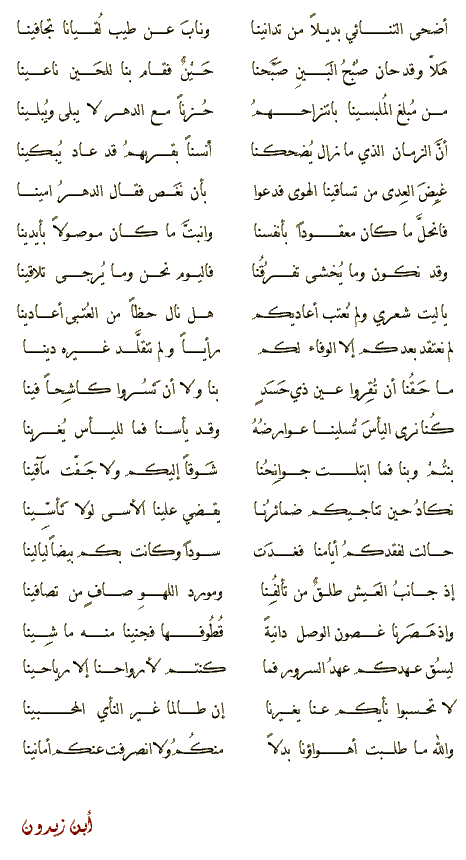 أضحى التنائي بديلاً من تدانينا وناب عن طيب لُقيانا تجافينا
هَلاّ وقد حان صُبْحُ البَينِ صَبَّحنا حَيْنٌ فقام بنا للحَين ناعينا
من مُبلغ المُلبسينا بانتزاحهمُ حُزناً مع الدهر لا يبلى ويُبلينا
أنَّ الزمان الذي ما زال يُضحكنا أنسناً بقربهمُ قد عاد يُبكينا
غيضَ العِدى من تساقينا الهوى فدعوا بأن نغَص فقال الدهرُ امينا
فانحلَّ ما كان معقوداً بأنفسنا وانبتَّ ما كان موصولاً بأيدينا
وقد نكون وما يُخشى تفرقُنا فاليوم نحن وما يُرجى تلاقينا
ياليت شعري ولم نُعتب أعاديكم هل نال حظاً من العُتبى أعادينا
لم نعتقد بعدكم إلا الوفاء لكم رأياً ولم نتقلَّد غيره دينا
ما حَقُنا أن تُقِروا عين ذي حَسَدٍ بنا ولا أن تَسُروا كاشِحاً فينا
كُنا نرى اليأسَ تُسلينا عوارضُهُ وقد يأسنا فما لليأس يُغرينا
بنتُمْ وبنا فما ابتلت جوانِحُنا شَوقاً إليكم ولا جَفّت مآقينا
نكادُ حين تناجيكم ضمائرُنا يقضي علينا الأسى لولا تأسّينا
حالت لفقدكمُ أيامنا فغدَت سوداً وكانت بكم بيضاً ليالينا
إذ جانبُ العَيش طلقٌ من تألُفِنا ومورد اللهو صافٍ من تصافينا
وإذ هَصَرنا غصون الوصل دانيةً قُطُوفها فجنينا منه ما شِينا
ليسق عهدكم عهدُ السرور فما كنتم لأرواحنا إلا رياحينا
لا تحسبوا نأيكم عنا يغيرنا إن طالما غير النأي المحبينا
والله ما طلبت أهواؤنا بدلاً منكُمُ ولا انصرفت عنكم أمانينا
أبن زيدون